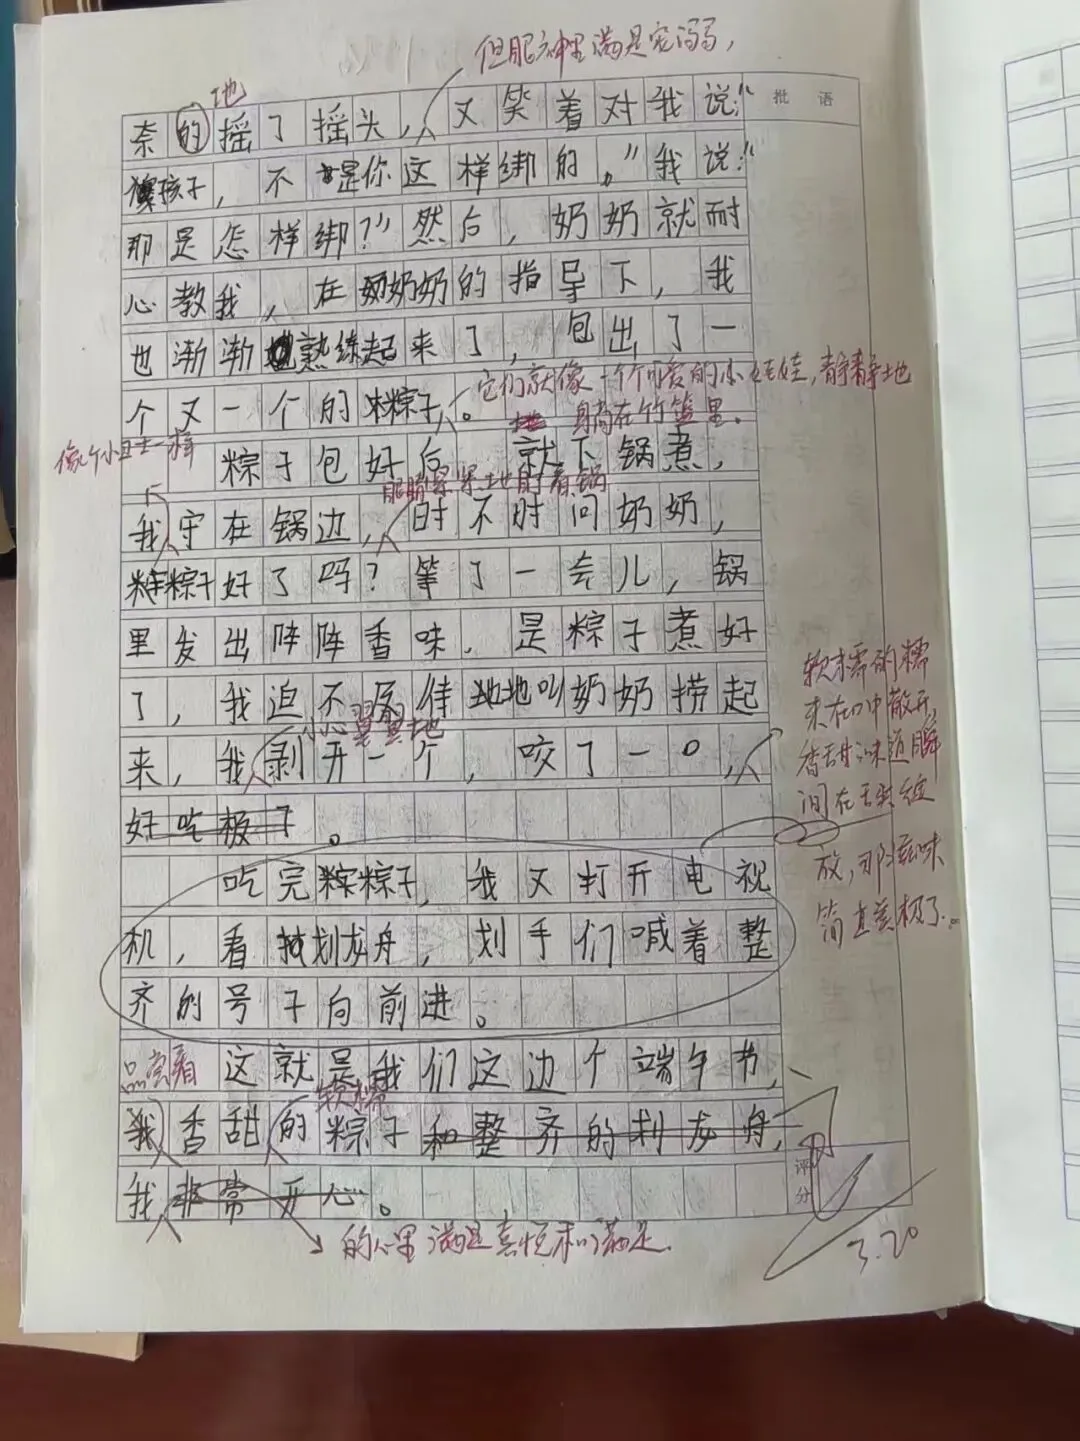 但眼神里满是宠溺,
地
批语
奈的摇了摇头,又笑着对我说:“
傻孩子,不是你这样绑的。”我说:“
那是怎样绑?”然后,奶奶就耐
心教我,在奶奶的指导下,我
也渐渐地熟练起来了,包出了一
它们就像一个个可爱的小娃娃,静静地
个又一个的粽子。
躺在竹篮里。
像个小卫士一样
粽子包好后,就下锅煮,
眼睛紧紧地盯着锅
我守在锅边,时不时问奶奶,
粽子好了吗?等了一会儿,锅
里发出阵阵香味.是粽子煮好
了,我迫不及待地叫奶奶捞起
小心翼翼地
来,我剥开一个,咬了一口,
好吃极了。
软糯的糯
米在口中散开,
香甜味道瞬
间在舌尖绽
放,那滋味
简直美极了。
吃完粽子,我又打开电视
机,看划龙舟,划手们喊着整
齐的号子向前进。
品尝着
这就是我们这边个端午节,
软糯
我香甜的粽子和整齐的划龙舟,
我非常开心。
评分
的心里满是喜悦和满足.
3.20